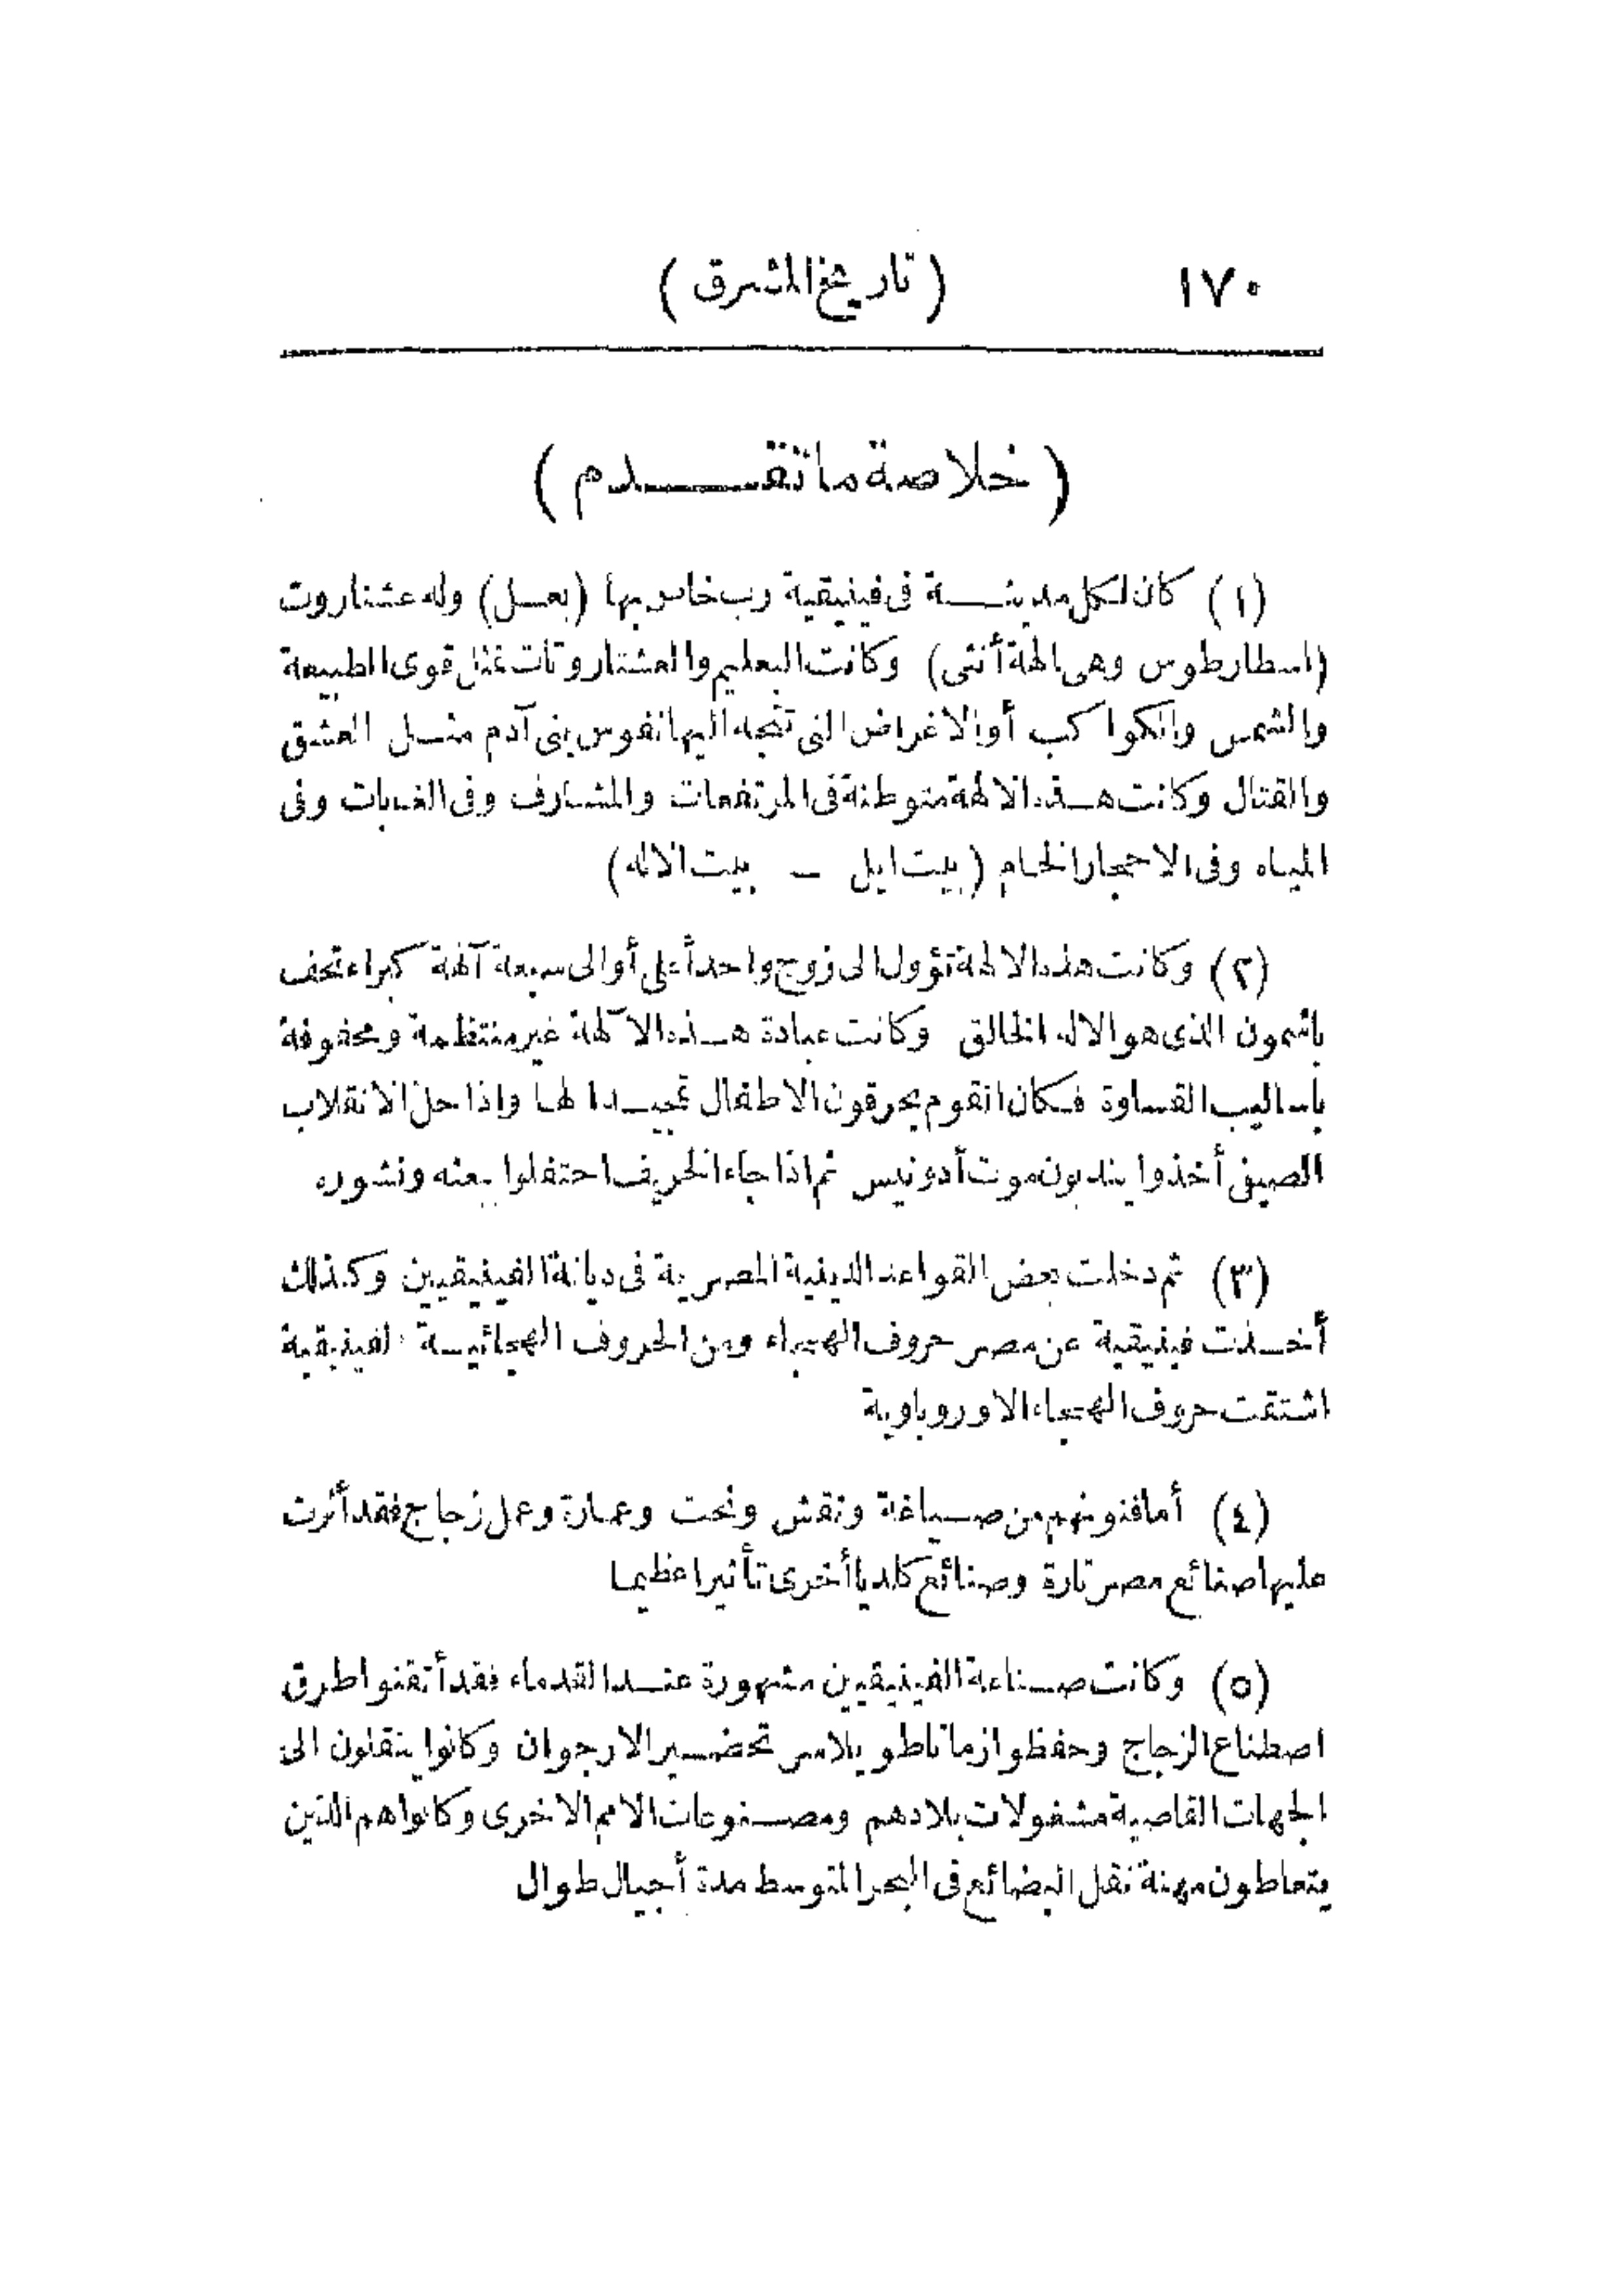 ١٧٠
( تاريخ المشرق )
( خلاصة ما تقدم )
(١) كان لكل مدينة فى فينيقية رب خاص بها (بعل) وله عشتاروت
(اسطارطوس وهى الهة أنثى) وكانت البعليم والعشتاروتات تمثل قوى الطبيعة
والشمس والكواكب أو الاغراض التى تتجه اليها نفوس بنى آدم مثل العشق
والقتال وكانت هذه الالهة متوطنة فى المرتفعات والمشارف وفى الغابات وفى
المياه وفى الاحجار الخام (بيت ايل – بيت الاله)
(٢) وكانت هذه الالهة تؤول الى زوج واحد أعلى أو الى سبعة آلهة كبراء تحف
باشمون الذى هو الاله الخالق وكانت عبادة هذه الآلهة غير منتظمة ومحفوفة
بأساليب القساوة فكان القوم يحرقون الاطفال تمجيدا لها واذا حل الانقلاب
الصيفى أخذوا يندبون موت أدونيس ثم اذا جاء الخريف احتفلوا ببعثه ونشوره
(٣) ثم دخلت بعض القواعد الدينية المصرية فى ديانة الفينيقيين وكذلك
أخذت فينيقية عن مصر حروف الهجاء ومن الحروف الهجائية الفينيقية
اشتقت حروف الهجاء الاوروباوية
(٤) أما فنونهم من صياغة ونقش ونحت وعمارة وعمل زجاج فقد أثرت
عليها صنائع مصر تارة وصنائع كلديا أخرى تأثيرا عظيما
(٥) وكانت صناعة الفينيقيين مشهورة عند القدماء فقد أتقنوا طرق
اصطناع الزجاج وحفظوا زمانا طويلا سر تحضير الارجوان وكانوا ينقلون الى
الجهات القاصية مشغولات بلادهم ومصنوعات الامم الاخرى وكانوا هم الذين
يتعاطون مهنة نقل البضائع فى البحر المتوسط مدة أجيال طوال